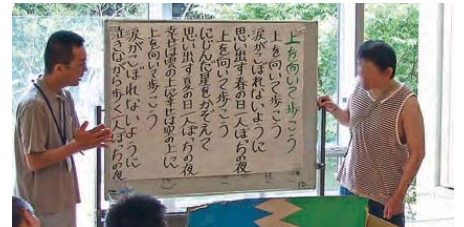 上を向いて歩こう
上を向いて歩こう
涙がこぼれないように
思い出す春の日一人ぼっちの夜
上を向いて歩こう
にじんだ星をかぞえて
思い出す夏の日一人ぼっちの夜
幸せは雲の上に幸せは空の上に
上を向いて歩こう
涙がこぼれないように
泣きながら歩く一人ぼっちの夜